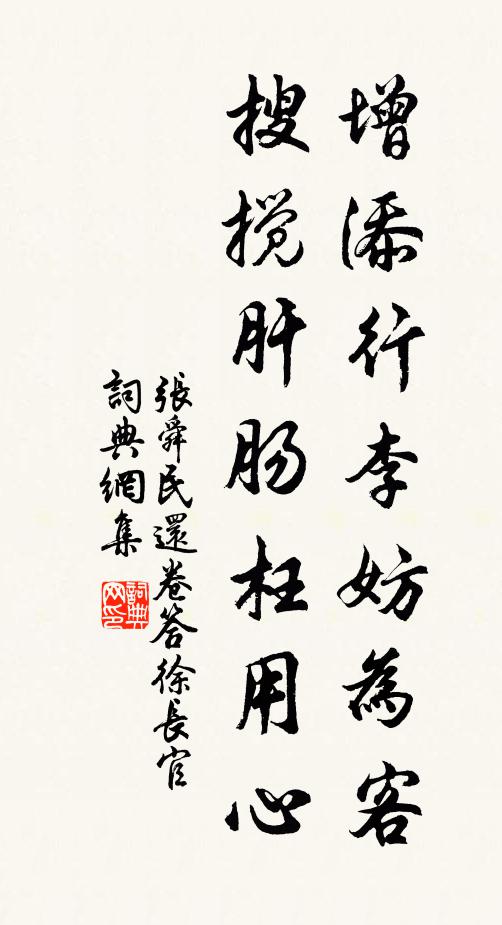 增添行李妨為客
搜搅肝肠枉用心
張舜民還卷答徐長官
詞典網集
詞典网印